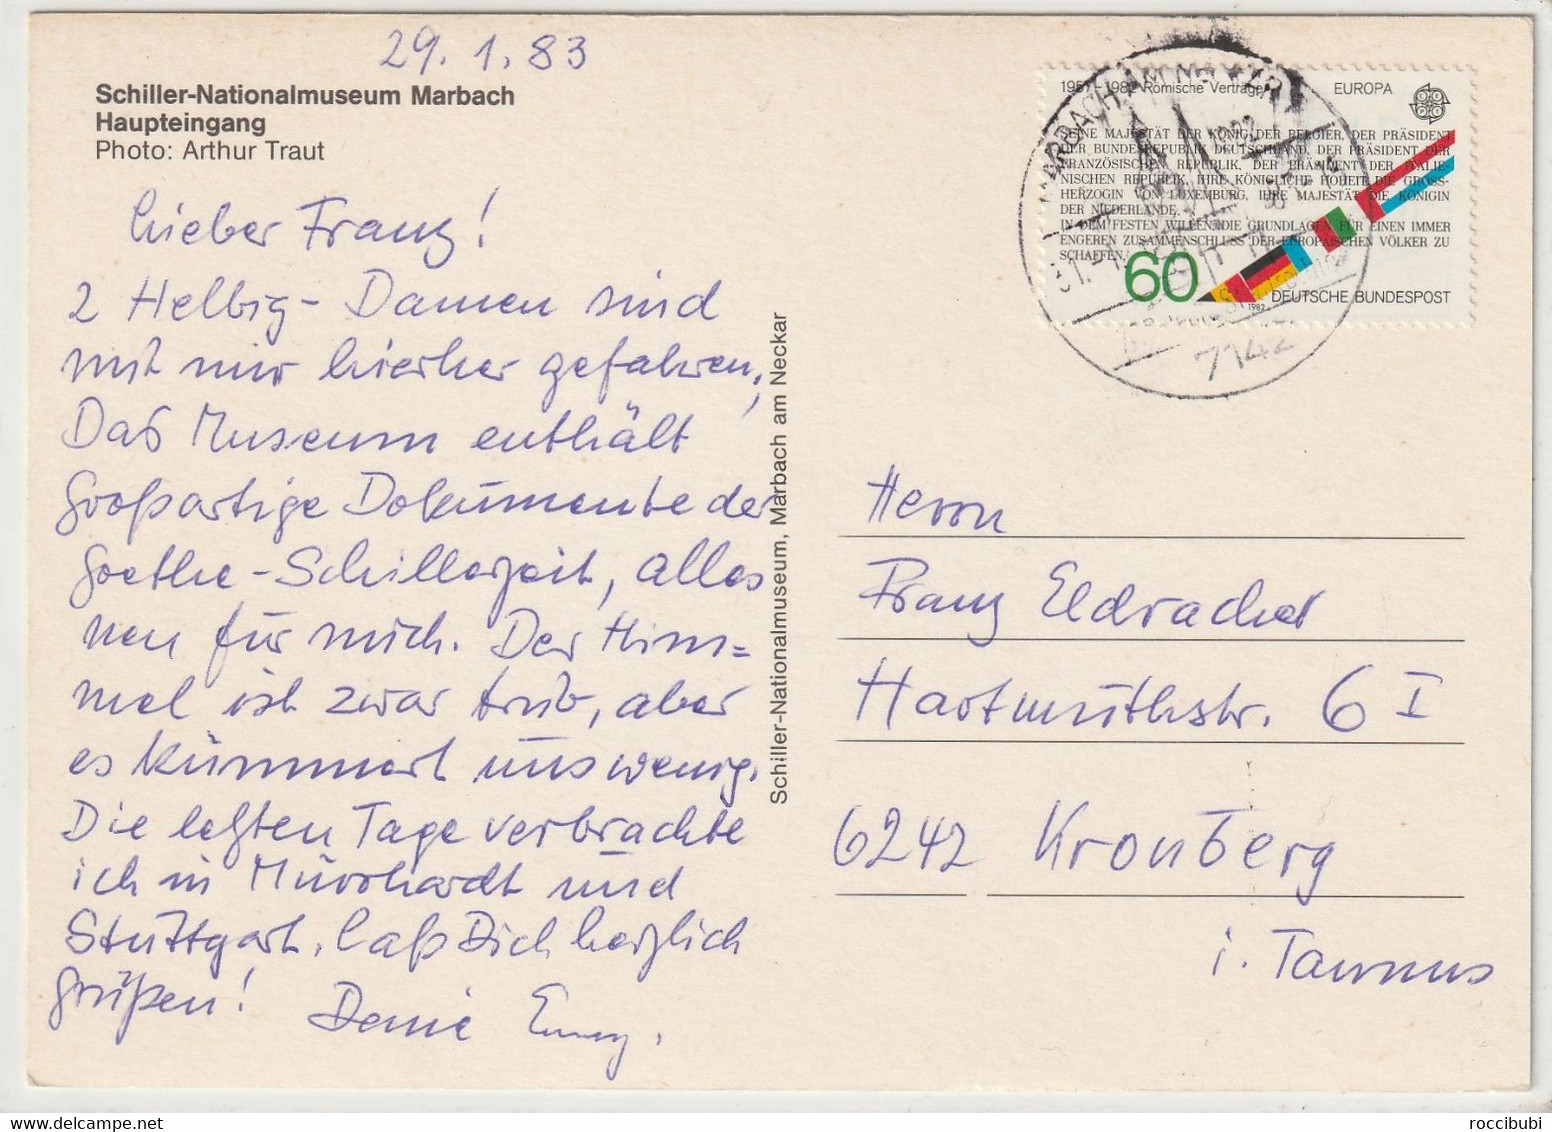 29.1.83
Schiller-Nationalmuseum Marbach
Haupteingang
Photo: Arthur Traut
Lieber Franz!
2 Helbig-Damen sind
mit mir hierher gefahren,
Das Museum enthält
großartige Dokumente der
Goethe-Schillerzeit, alles
neu für mich. Der Him=
mel ist zwar trüb, aber
es kümmert uns wenig.
Die letzten Tage verbrachte
ich in Murrhardt und
Stuttgart. Laß Dich herzlich
grüßen!
Deine Emmy.
Schiller-Nationalmuseum, Marbach am Neckar
1957-1982 Römische Verträge EUROPA
SEINE MAJESTÄT DER KÖNIG DER BELGIER, DER PRÄSIDENT
DER BUNDESREPUBLIK DEUTSCHLAND, DER PRÄSIDENT DER
FRANZÖSISCHEN REPUBLIK, DER PRÄSIDENT DER ITALIE-
NISCHEN REPUBLIK, IHRE KÖNIGLICHE HOHEIT DIE GROSS-
HERZOGIN VON LUXEMBURG, IHRE MAJESTÄT DIE KÖNIGIN
DER NIEDERLANDE,
IN DEM FESTEN WILLEN, DIE GRUNDLAGEN FÜR EINEN IMMER
ENGEREN ZUSAMMENSCHLUSS DER EUROPÄISCHEN VÖLKER ZU
SCHAFFEN,
60
1982
DEUTSCHE BUNDESPOST
MARBACH AM NECKAR
7142
Herrn
Franz Eldracher
Hartmuthstr. 6 I
6242 Kronberg
i. Taunus
roccibubi